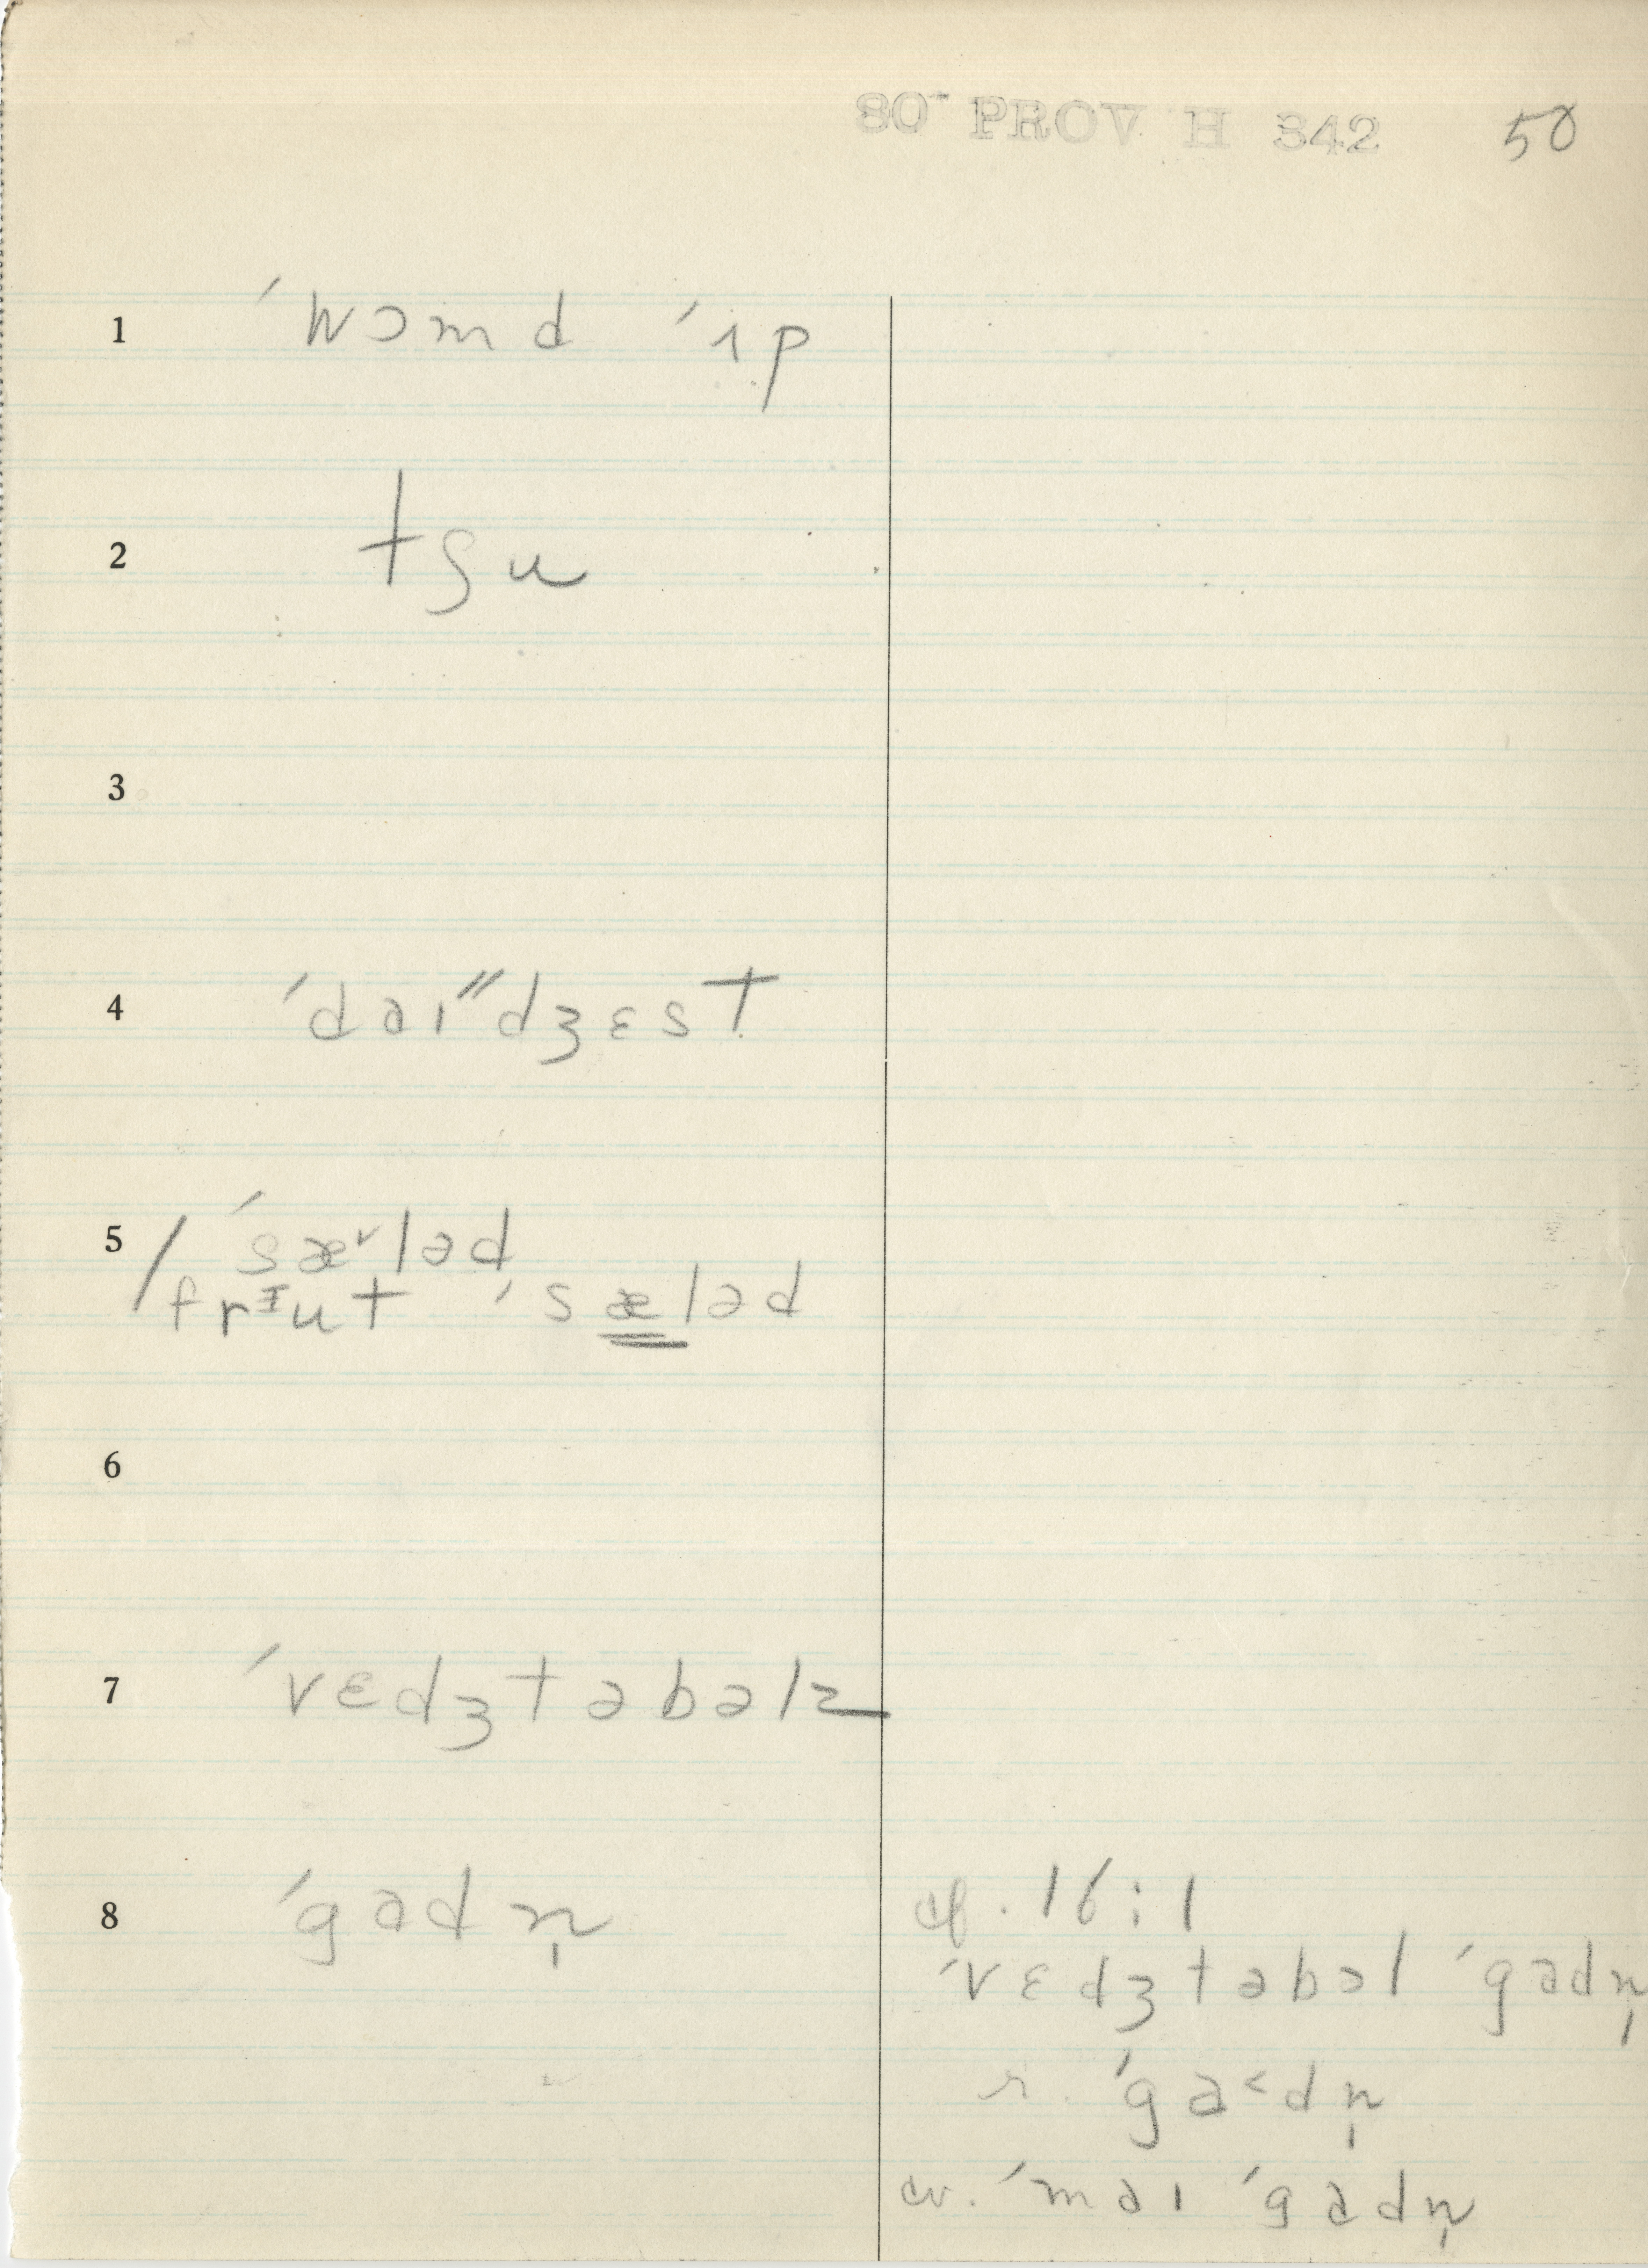 80 PROV H 342 50
1 ˊwɔmd ˊɪp
2 tʃu
3
4 ˊdaɪ˝dʒɛst
5 / ˊsæ˅ləd
frᶦut ˊsæləd
6
7 ˊvɛdʒtəbəlz
8 ˊgadn̩
cf. 16:1
ˊvɛdʒtəbəl ˊgadn̩
r. ˊga˂dn̩
cv. ˊmaɪ ˊgadn̩